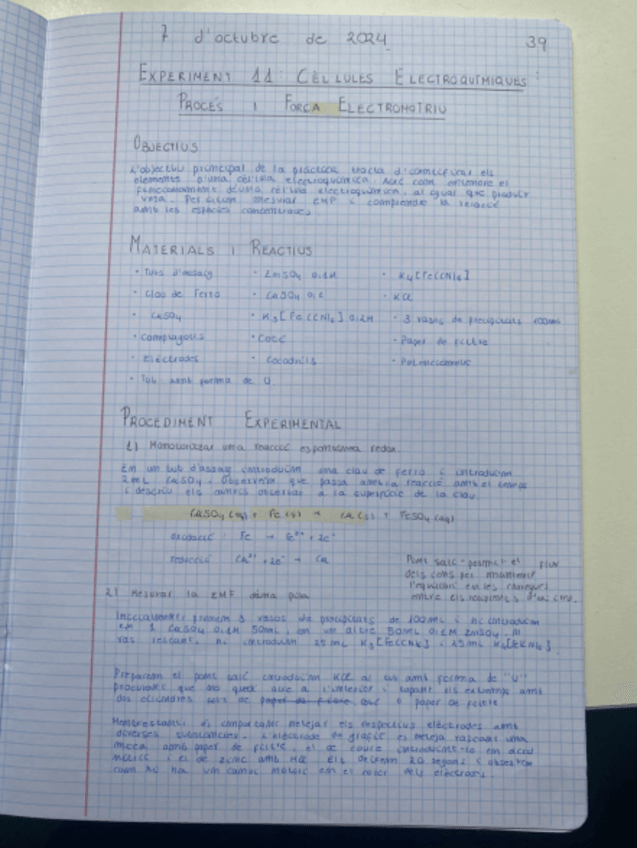 7 d'octubre de 2024 39
EXPERIMENT 11: CÈL·LULES ELECTROQUÍMIQUES:
PROCÉS I FORÇA ELECTROMOTRIU
OBJECTIUS
L'objectiu principal de la pràctica tracta d'identificar els
elements d'una cèl·lula electroquímica. Així com entendre el
funcionament d'una cèl·lula electroquímica, al igual que produir
una. Per últim mesurar EMF i comprendre la relació
amb les espècies concentrades
MATERIALS I REACTIUS
· Tubs d'assaig · ZnSO4 0,1M · K4[Fe(CN)6]
· Clau de ferro · CuSO4 0,1 · KCl
· CuSO4 · K3[Fe(CN)6] 0,1M · 3 vasos de precipitats 100mL
· Comptagotes · Paper de filtre
· Elèctrodes · Cocodrils
· Tub amb forma de U
PROCEDIMENT EXPERIMENTAL
1) reacció espontània redox.
En un tub d'assaig introduïm una clau de ferro i introduïm
2mL CuSO4 i observem que passa amb la reacció amb el temps
i descriu els canvis observats a la superfície de la clau.
CuSO4 (aq) + Fe (s) → Cu (s) + FeSO4 (aq)
oxidació: Fe → Fe2+ + 2e-
reducció Cu2+ + 2e- → Cu
Pont salí - permet el flux
dels ions per mantenir
l'equilibri en les càrregues
entre els recipients d'una
2) Mesurar la EMF d'una pila
Inicialment prenem 3 vasos de precipitats de 100mL i hi introduïm
en 1 CuSO4 0,1M 50mL, en un altre 50mL 0,1M ZnSO4. Al
vas restant, hi introduïm 25mL K3[Fe(CN)6] i 25mL K4[Fe(CN)6].
Preparem el pont salí introduïm KCl al tub amb forma de "U"
procurant que no quedi aire a l'interior i tapant els extrems amb
dos cilindres de o paper de filtre
Mentrestant, el company netejar els respectius elèctrodes amb
diverses substàncies. L'elèctrode de grafit es neteja rascant una
mica amb paper de filtre, el de coure introduint-lo en àcid
nítric i el de zinc amb HCl. Els deixem 20 segons i observem
com hi ha un canvi en el color dels elèctrodes.